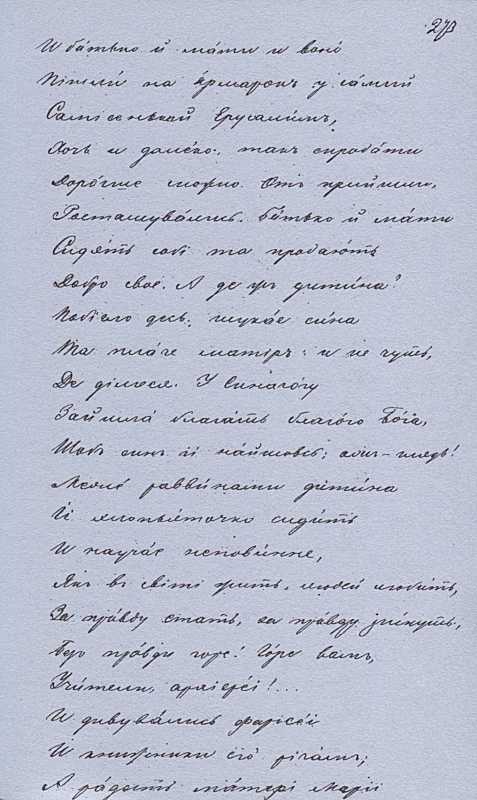 273
И ба́тько й ма́ти и воно́
Пішли́ на я́рмарокъ у са́мий
Самісенькой Ерусали́мъ,
Хочъ и дале́ко, такъ спрода́ти
Доро́гше можно. Отъ прийшли,
Росташува́лись. Ба́тько й ма́ти
Сидя́ть собі та продаю́ть
Добро своє́. А де жъ дити́на?
Побігло десь; шука́е си́на
Та пла́че матіръ: и не чуть,
Де ділося. У Синаго́гу
Зайшла́ блага́ть благо́го Бо́га,
Щобъ синъ іі найшовсь; ажъ–глядь!
Межъ равви́нами дити́на
Іі хлопьяточко сиди́ть
И науча́е неповинне,
Якъ в світі жить, людей любить,
За пра́вду стать, за пра́вду згинуть,
Безъ пра́вди горе! Го́ре вамъ,
Учи́тели, архіере́і!...
И дивувались фарісе́і
И книжники ёго́ річамъ;
А ра́дость ма́тері Маріі